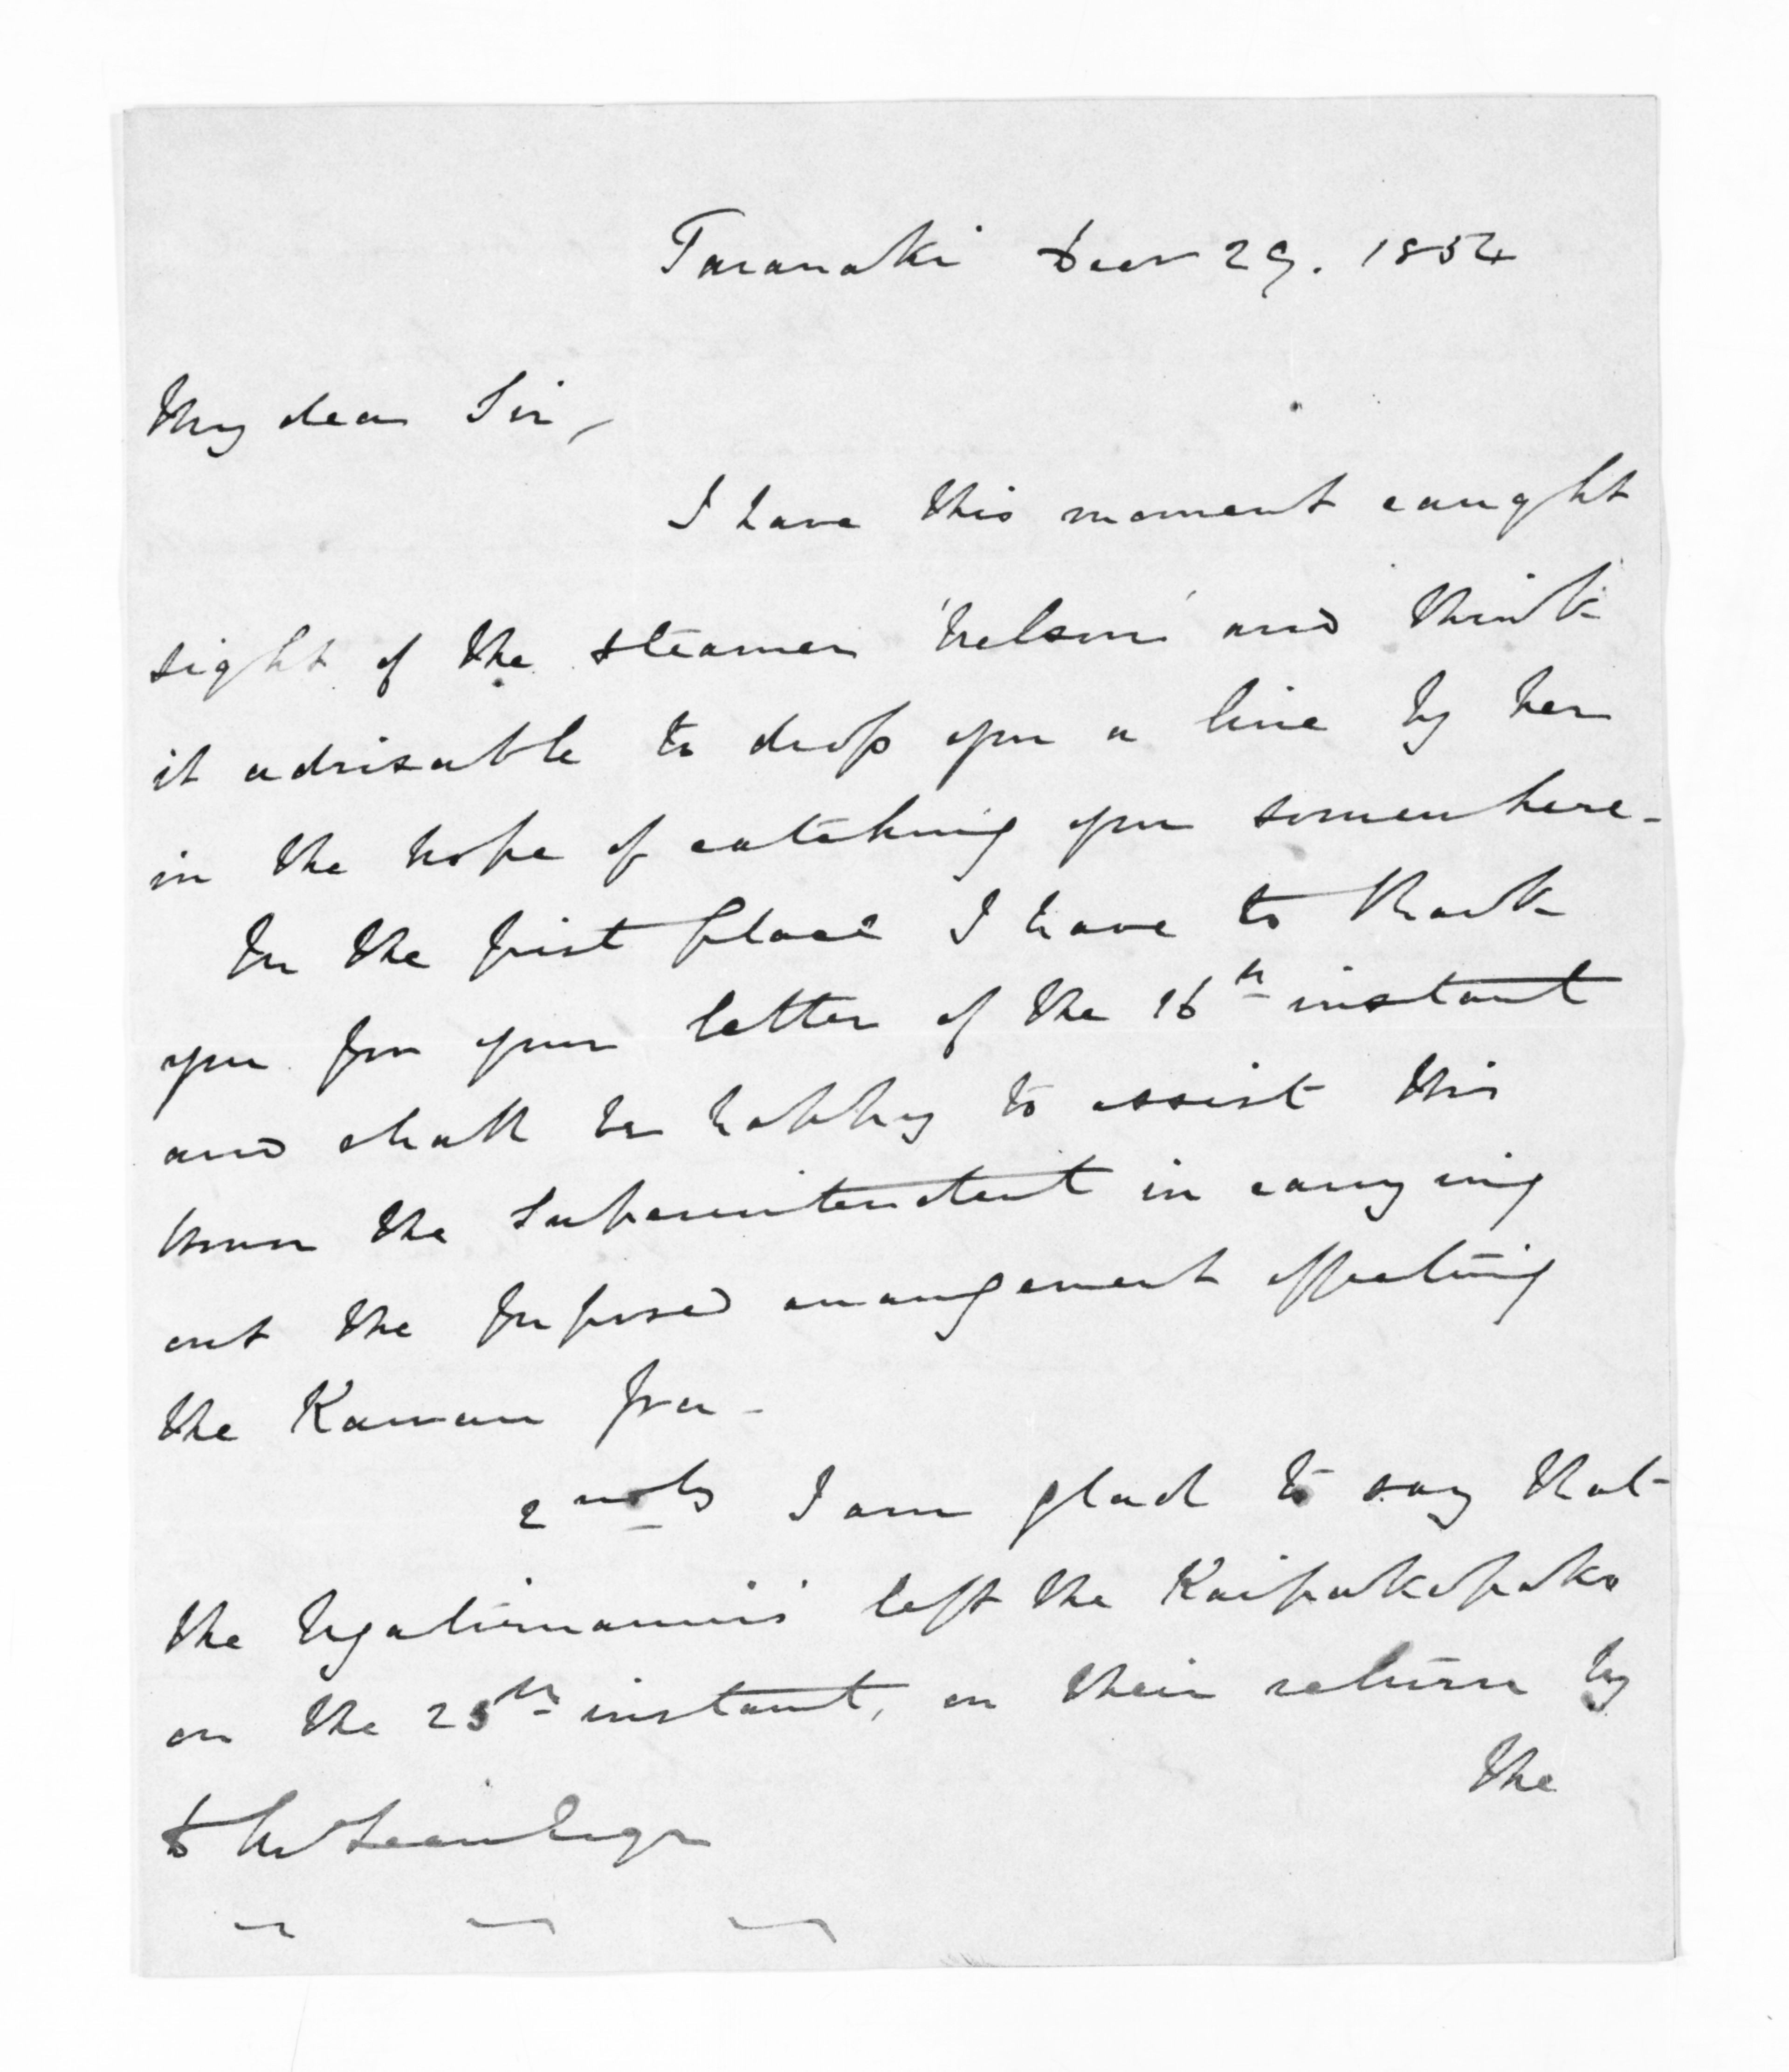 Taranaki Decr 29. 1854
My dear Sir,
I have this moment caught
sight of the steamer 'Nelson' and think
it advisable to drop you a line by her
in the hope of catching you somewhere -
In the first place I have to thank
you for your letter of the 16th instant
and shall be happy to assist this
the Superintendent in carrying
out the proposed arrangement affecting
the Kawau pa -
2ndly I am glad to say that
the Ngatimaniis left the Kaipakopako
on the 25th instant, on their return by
the
D McLean Esqr